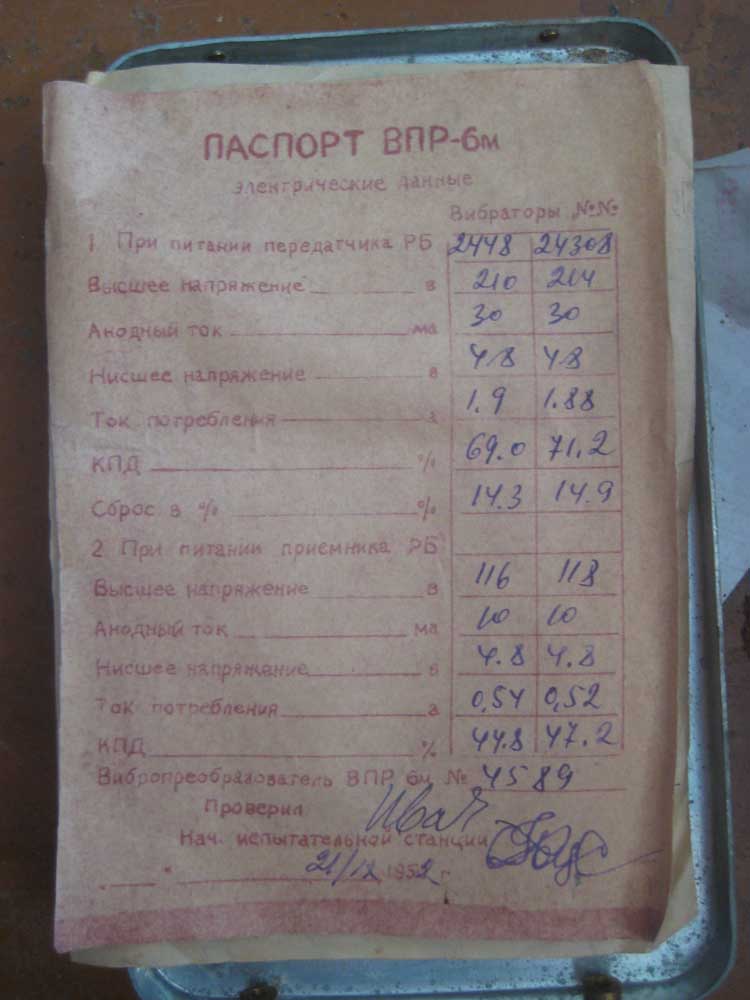 ПАСПОРТ ВПР-6м
электрические данные
Вибраторы №№
1. При питании передатчика РБ 2448 24308
Высшее напряжение в 210 214
Анодный ток ма 30 30
Нисшее напряжение в 4.8 4.8
Ток потребления а 1.9 1.88
КПД % 69.0 71.2
Сброс в % % 14.3 14.9
2. При питании приемника РБ
Высшее напряжение в 116 118
Анодный ток ма 10 10
Нисшее напряжение в 4.8 4.8
Ток потребления а 0,54 0,52
КПД % 44.8 47.2
Вибропреобразователь ВПР 6м № 4589
Проверил
Нач. испытательной станции
" " 21/12 1952 г